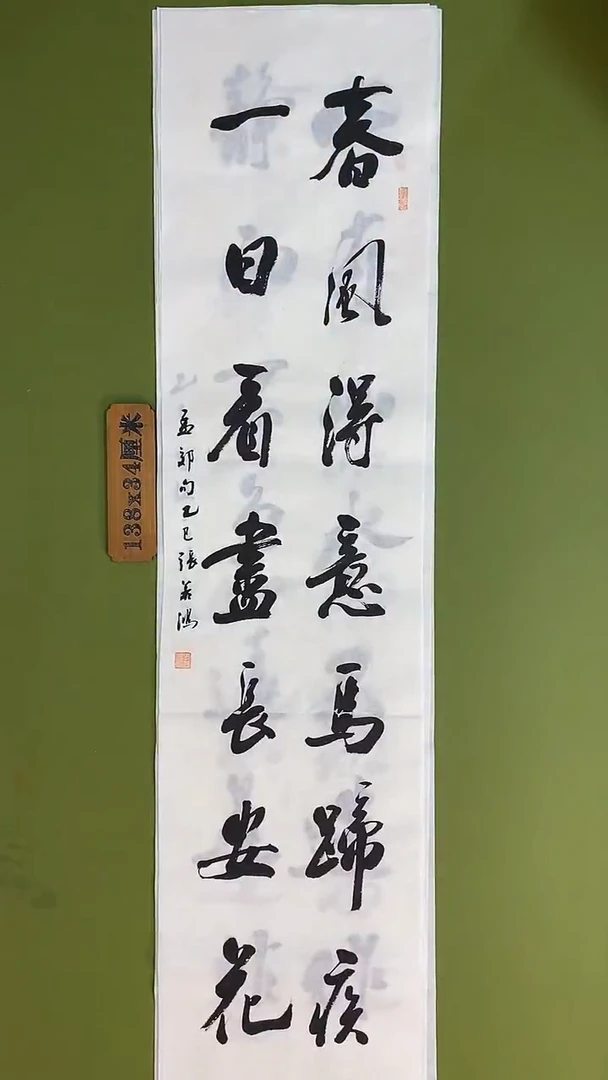 春風得意馬蹄疾
一日看盡長安花
孟郊句乙巳張
138x34厘米